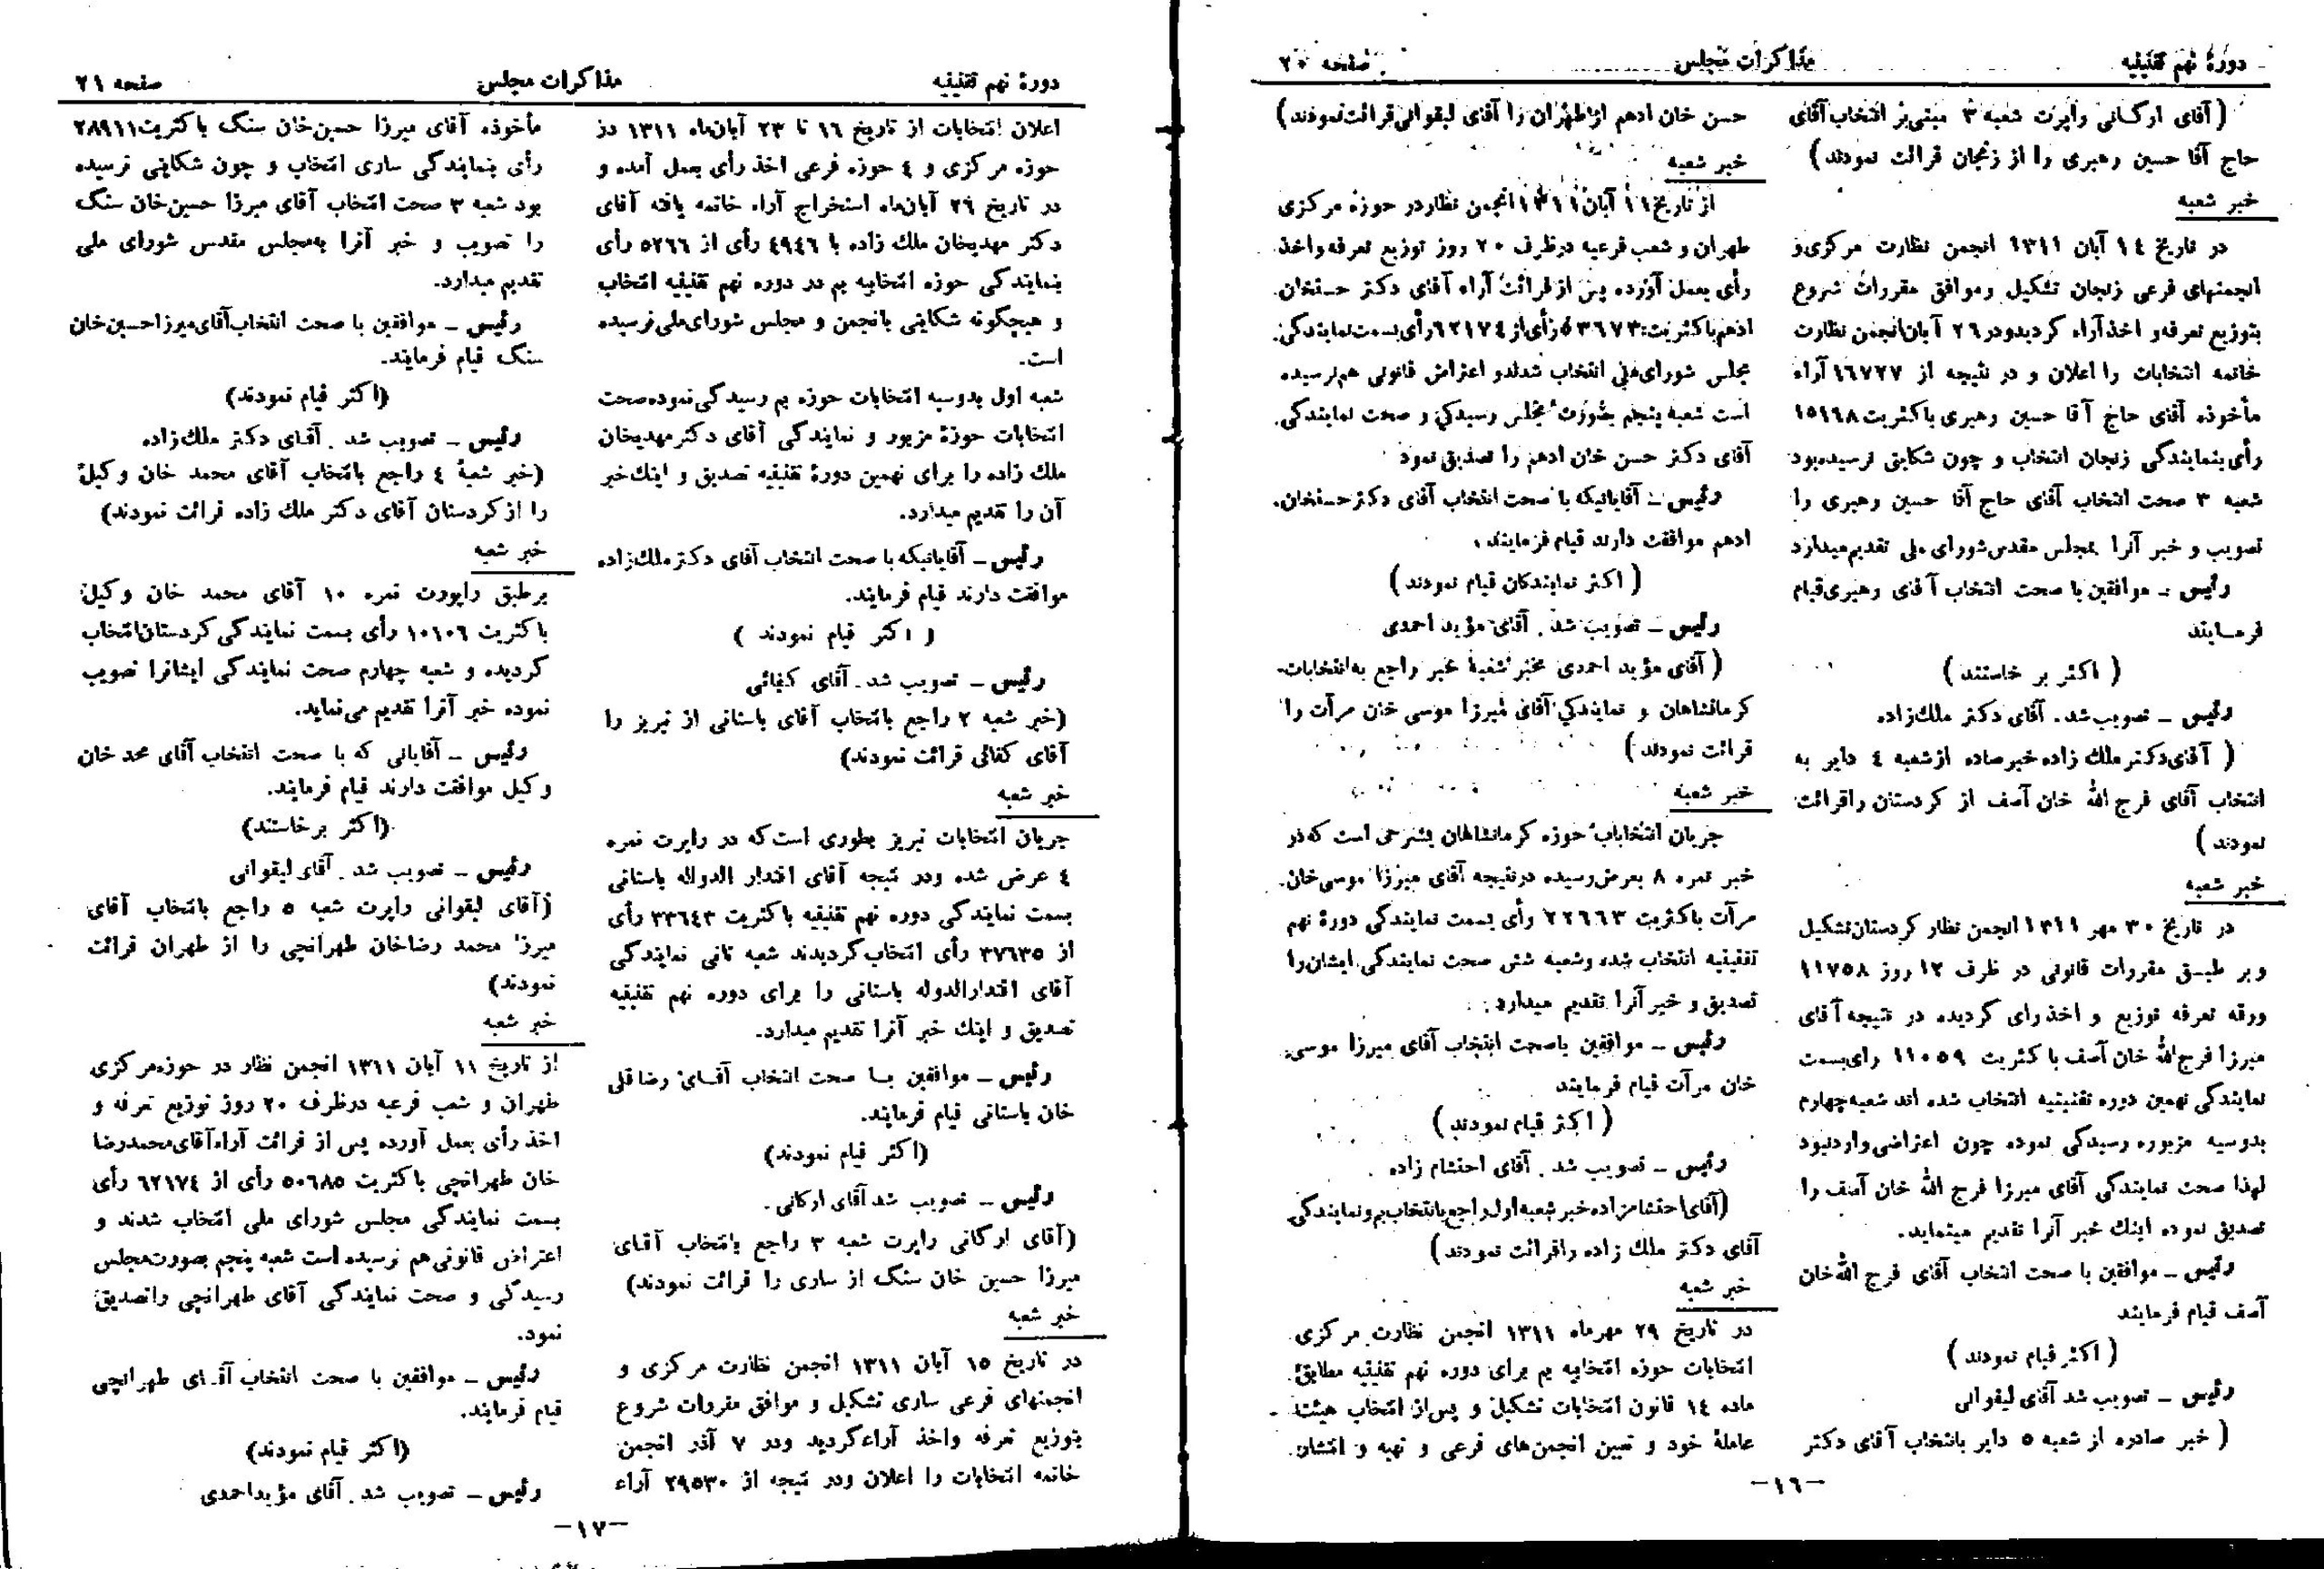 دورهٔ نهم تقنینیه
مذاکرات مجلس
صفحه ۲۰
(آقای ارکانی راپرت شعبه ۳ مبنی‌بر انتخاب آقای
حاج آقا حسین رهبری را از زنجان قرائت نمودند)
خبر شعبه
در تاریخ ۱٤ آبان ۱۳۱۱ انجمن نظارت مرکزی و
انجمنهای فرعی زنجان تشکیل و موافق مقررات شروع
بتوزیع تعرفه و اخذ آراء گردید و در ۲۹ آبان انجمن نظارت
خاتمه انتخابات را اعلان و در نتیجه از ۱٦۷۲۷ آراء
مأخوذه آقای حاج آقا حسین رهبری باکثریت ۱۵۱٦۸
رأی بنمایندگی زنجان انتخاب و چون شکایتی نرسیده بود
شعبه ۳ صحت انتخاب آقای حاج آقا حسین رهبری را
تصویب و خبر آنرا بمجلس مقدس شورای ملی تقدیم میدارد
رئیس ـ موافقین با صحت انتخاب آقای رهبری قیام
فرمایند
( اکثر بر خاستند )
رئیس ـ تصویب شد . آقای دکتر ملك زاده
( آقای دکتر ملك زاده خبر صادره از شعبه ٤ دایر به
انتخاب آقای فرج الله خان آصف از کردستان را قرائت
نمودند )
خبر شعبه
در تاریخ ۳۰ مهر ۱۳۱۱ انجمن نظار کردستان تشکیل
و بر طبق مقررات قانونی در ظرف ۱۲ روز ۱۱۷۵۸
ورقه تعرفه توزیع و اخذ رای گردیده در نتیجه آقای
میرزا فرج الله خان آصف با کثریت ۱۱۰۵۹ رای بسمت
نمایندگی نهمین دوره تقنینیه انتخاب شده اند شعبه چهارم
بدوسیه مزبوره رسیدگی نموده چون اعتراضی وارد نبود
لهذا صحت نمایندگی آقای میرزا فرج الله خان آصف را
تصدیق نموده اینك خبر آنرا تقدیم مینماید.
رئیس ـ موافقین با صحت انتخاب آقای فرج الله خان
آصف قیام فرمایند
( اکثر قیام نمودند )
رئیس ـ تصویب شد آقای لیقوانی
( خبر صادره از شعبه ۵ دایر بانتخاب آقای دکتر
حسن خان ادهم از طهران را آقای لیقوانی قرائت نمودند)
خبر شعبه
از تاریخ ۱۱ آبان ۱۳۱۱ انجمن نظار در حوزه مرکزی
طهران و شعب فرعیه در ظرف ۲۰ روز توزیع تعرفه و اخذ
رأی بعمل آورده پس از قرائت آراء آقای دکتر حسنخان
ادهم باکثریت ۵۳٦۷۳ رأی از ٦۲۱۷٤ رأی بسمت نمایندگی
مجلس شورای ملی انتخاب شدند و اعتراض قانونی هم نرسیده
است شعبه پنجم بصورت مجلس رسیدگی و صحت نمایندگی
آقای دکتر حسن خان ادهم را تصدیق نمود
رئیس ـ آقایانیکه با صحت انتخاب آقای دکتر حسنخان
ادهم موافقت دارند قیام فرمایند .
( اکثر نمایندگان قیام نمودند )
رئیس ـ تصویب شد . آقای مؤید احمدی
( آقای مؤید احمدی مخبر شعبهٔ خبر راجع به انتخابات
کرمانشاهان و نمایندگی آقای میرزا موسی خان مرآت را
قرائت نمودند )
خبر شعبه
جریان انتخابات حوزه کرمانشاهان بشرحی است که در
خبر نمره ۸ بعرض رسیده در نتیجه آقای میرزا موسی خان
مرآت باکثریت ۲۲٦٦۳ رأی بسمت نمایندگی دورهٔ نهم
تقنینیه انتخاب شده و شعبه شش صحت نمایندگی ایشان را
تصدیق و خبر آنرا تقدیم میدارد .
رئیس ـ موافقین با صحت انتخاب آقای میرزا موسی
خان مرآت قیام فرمایند
( اکثر قیام نمودند )
رئیس ـ تصویب شد . آقای احتشام زاده .
(آقای احتشامزاده خبر شعبه اول راجع بانتخاب بم و نمایندگی
آقای دکتر ملك زاده را قرائت نمودند )
خبر شعبه
در تاریخ ۲۹ مهرماه ۱۳۱۱ انجمن نظارت مرکزی
انتخابات حوزه انتخابیه بم برای دوره نهم تقنینیه مطابق
ماده ۱٤ قانون انتخابات تشکیل و پس از انتخاب هیئت
عاملهٔ خود و تعیین انجمن‌های فرعی و تهیه و انتشار
-۱٦-
دورهٔ نهم تقنینیه
مذاکرات مجلس
صفحه ۲۱
اعلان انتخابات از تاریخ ۱٦ تا ۲۳ آبان‌ماه ۱۳۱۱ در
حوزه مرکزی و ٤ حوزه فرعی اخذ رأی بعمل آمده و
در تاریخ ۲۹ آبان‌ماه استخراج آراء خاتمه یافته آقای
دکتر مهدیخان ملك زاده با ٤۹٤٦ رأی از ۵۲٦٦ رأی
بنمایندگی حوزه انتخابیه بم در دوره نهم تقنینیه انتخاب
و هیچگونه شکایتی بانجمن و مجلس شورای ملی نرسیده
است.
شعبه اول بدوسیه انتخابات حوزه بم رسیدگی نموده صحت
انتخابات حوزهٔ مزبور و نمایندگی آقای دکتر مهدیخان
ملك زاده را برای نهمین دورهٔ تقنینیه تصدیق و اینك خبر
آن را تقدیم میدارد.
رئیس ـ آقایانیکه با صحت انتخاب آقای دکتر ملك زاده
موافقت دارند قیام فرمایند.
( اکثر قیام نمودند )
رئیس ـ تصویب شد . آقای کفائی
(خبر شعبه ۲ راجع بانتخاب آقای باستانی از تبریز را
آقای کفائی قرائت نمودند)
خبر شعبه
جریان انتخابات تبریز بطوری است که در راپرت نمره
٤ عرض شده و در نتیجه آقای اقتدار الدوله باستانی
بسمت نمایندگی دوره نهم تقنینیه باکثریت ۳۳٦٤۳ رأی
از ۳۷٦۳۵ رأی انتخاب گردیدند شعبه ثانی نمایندگی
آقای اقتدارالدوله باستانی را برای دوره نهم تقنینیه
تصدیق و اینك خبر آنرا تقدیم میدارد.
رئیس ـ موافقین با صحت انتخاب آقای رضا قلی
خان باستانی قیام فرمایند.
(اکثر قیام نمودند)
رئیس ـ تصویب شد آقای ارکانی .
(آقای ارکانی راپرت شعبه ۳ راجع بانتخاب آقای
میرزا حسین خان سنگ از ساری را قرائت نمودند)
خبر شعبه
در تاریخ ۱۵ آبان ۱۳۱۱ انجمن نظارت مرکزی و
انجمنهای فرعی ساری تشکیل و موافق مقررات شروع
بتوزیع تعرفه واخذ آراءگردید ودر ۷ آذر انجمن
خاتمه انتخابات را اعلان ودر نتیجه از ۲۹۵۳۰ آراء
مأخوذه آقای میرزا حسین‌خان سنگ باکثریت ۲۸۹۱۱
رأی بنمایندگی ساری انتخاب و چون شکایتی نرسیده
بود شعبه ۳ صحت انتخاب آقای میرزا حسین‌خان سنگ
را تصویب و خبر آنرا به‌مجلس مقدس شورای ملی
تقدیم میدارد.
رئیس ـ موافقین با صحت انتخاب آقای میرزا حسین خان
سنگ قیام فرمایند.
(اکثر قیام نمودند)
رئیس ـ تصویب شد . آقای دکتر ملك زاده
(خبر شعبهٔ ٤ راجع بانتخاب آقای محمد خان وکیل
را از کردستان آقای دکتر ملك زاده قرائت نمودند)
خبر شعبه
برطبق راپورت نمره ۱۰ آقای محمد خان وکیل
باکثریت ۱۰٦۰٦ رأی بسمت نمایندگی کردستان انتخاب
گردیده و شعبه چهارم صحت نمایندگی ایشانرا تصویب
نموده خبر آنرا تقدیم می‌نماید.
رئیس ـ آقایانی که با صحت انتخاب آقای محمد خان
وکیل موافقت دارند قیام فرمایند.
(اکثر برخاستند)
رئیس ـ تصویب شد . آقای لیقوانی
(آقای لیقوانی راپرت شعبه ۵ راجع بانتخاب آقای
میرزا محمد رضاخان طهرانچی را از طهران قرائت
نمودند)
خبر شعبه
از تاریخ ۱۱ آبان ۱۳۱۱ انجمن نظار در حوزه مرکزی
طهران و شعب فرعیه در ظرف ۲۰ روز توزیع تعرفه و
اخذ رأی بعمل آورده پس از قرائت آراء آقای محمدرضا
خان طهرانچی باکثریت ۵۰٦۸۵ رأی از ٦۲۱۷٤ رأی
بسمت نمایندگی مجلس شورای ملی انتخاب شدند و
اعتراض قانونی هم نرسیده است شعبه پنجم بصورت مجلس
رسیدگی و صحت نمایندگی آقای طهرانچی را تصدیق
نمود.
رئیس ـ موافقین با صحت انتخاب آقای طهرانچی
قیام فرمایند.
(اکثر قیام نمودند)
رئیس ـ تصویب شد . آقای مؤید احمدی
-۱۷-